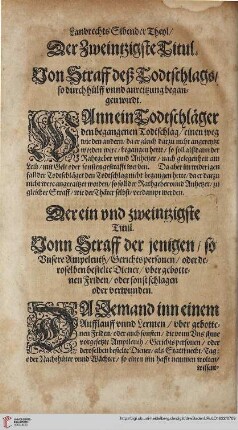 Landrechts Sibender Theyl/
Der Zweintzigste Titul.
Von Straff deß Todtschlags/
so durch hülff vnnd anreitzung began-
gen wirdt.
WAnn ein Todtschläger
den begangenen Todtschlag/ einen weg
wie den andern/ da er gleich darzu nicht angereitzt
worden were/ begangen hette/ so soll alsdann der
Rathgeber vnnd Anhetzer/ nach gelegenheit am
Leib/ mit Gelt oder sonsten gestrafft werden. Da aber
soll der Todtschläger den Todtschlag nicht begangen hette/ da er darzu
nicht were angereitzet worden/ so soll der Rathgeber vnnd Anhetzer/ zu
gleicher Straff/ wie der Thäter selbst/ verdampt werden.
Der ein vnd zweintzigste
Titul.
Vonn Straff der jenigen/ so
Vnsere Amptleuth/ Gerichtspersonen/ oder de-
roselben bestelte Diener/ vber gebotte-
nen Friden/ oder sonst schlagen
oder verwunden.
DA Jemand inn einem
Aufflauff vnnd Lermen/ vber gebotte-
nen Friden/ oder auch sonsten/ die von Vns jme
vorgesetzte Amptleuth/ Gerichtspersonen/ oder
derselben bestelte Diener/ als Stattknecht/ Tag-
oder Nachthüter vnd Wächter/ so einen inn hafft nemmen wolten/